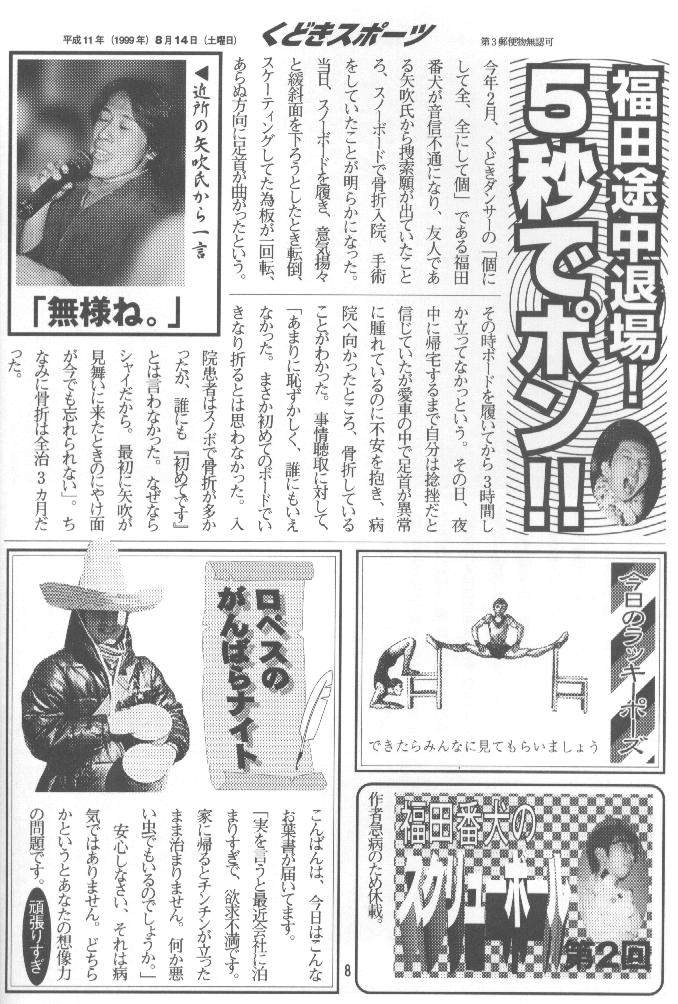 平成11年（1999年）8月14日（土曜日）
くどきスポーツ
第３郵便物無認可
福田途中退場！
５秒でポン!!
今年２月、くどきダンサーの「個に
して全、全にして個」である福田
番犬が音信不通になり、友人であ
る矢吹氏から捜索願が出ていたこと
ろ、スノーボードで骨折入院、手術
をしていたことが明らかになった。
当日、スノーボードを履き、意気揚々
と緩斜面を下ろうとしたとき転倒、
スケーティングしてた為板が一回転、
あらぬ方向に足首が曲がったという。
◀近所の矢吹氏から一言
「無様ね。」
その時ボードを履いてから３時間し
か立ってなかっという。その日、夜
中に帰宅するまで自分は捻挫だと
信じていたが愛車の中で足首が異常
に腫れているのに不安を抱き、病
院へ向かったところ、骨折している
ことがわかった。事情聴取に対して、
「あまりに恥ずかしく、誰にもいえ
なかった。まさか初めてのボードでい
きなり折るとは思わなかった。入
院患者はスノボで骨折が多か
ったが、誰にも『初めてです』
とは言わなかった。なぜなら
シャイだから。最初に矢吹が
見舞いに来たときのにやけ面
が今でも忘れられない」。ち
なみに骨折は全治３カ月だ
った。
今日のラッキーポーズ
できたらみんなに見てもらいましょう
ロペスの
がんばらナイト
こんばんは、今日はこんな
お葉書が届いてます。
「実を言うと最近会社に泊
まりすぎで、欲求不満です。
家に帰るとチンチンが立った
まま治まりません。何か悪
い虫でもいるのでしょうか。」
安心しなさい、それは病
気ではありません。どちら
かというとあなたの想像力
の問題です。
頑張りすぎ
福田番犬の
スクリューボール
第２回
作者急病のため休載。
8